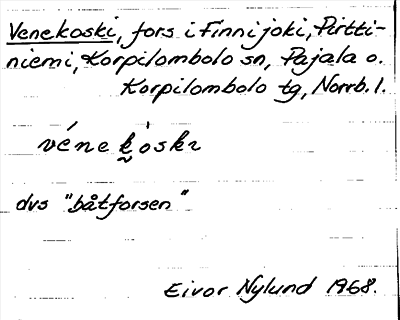 Venekoski, fors i Finnijoki, Pirtti-
niemi, Korpilombolo sn, Pajala o.
Korpilombolo tg, Norrb. l.
vének̬òski
dvs "båtforsen"
Eivor Nylund 1968.